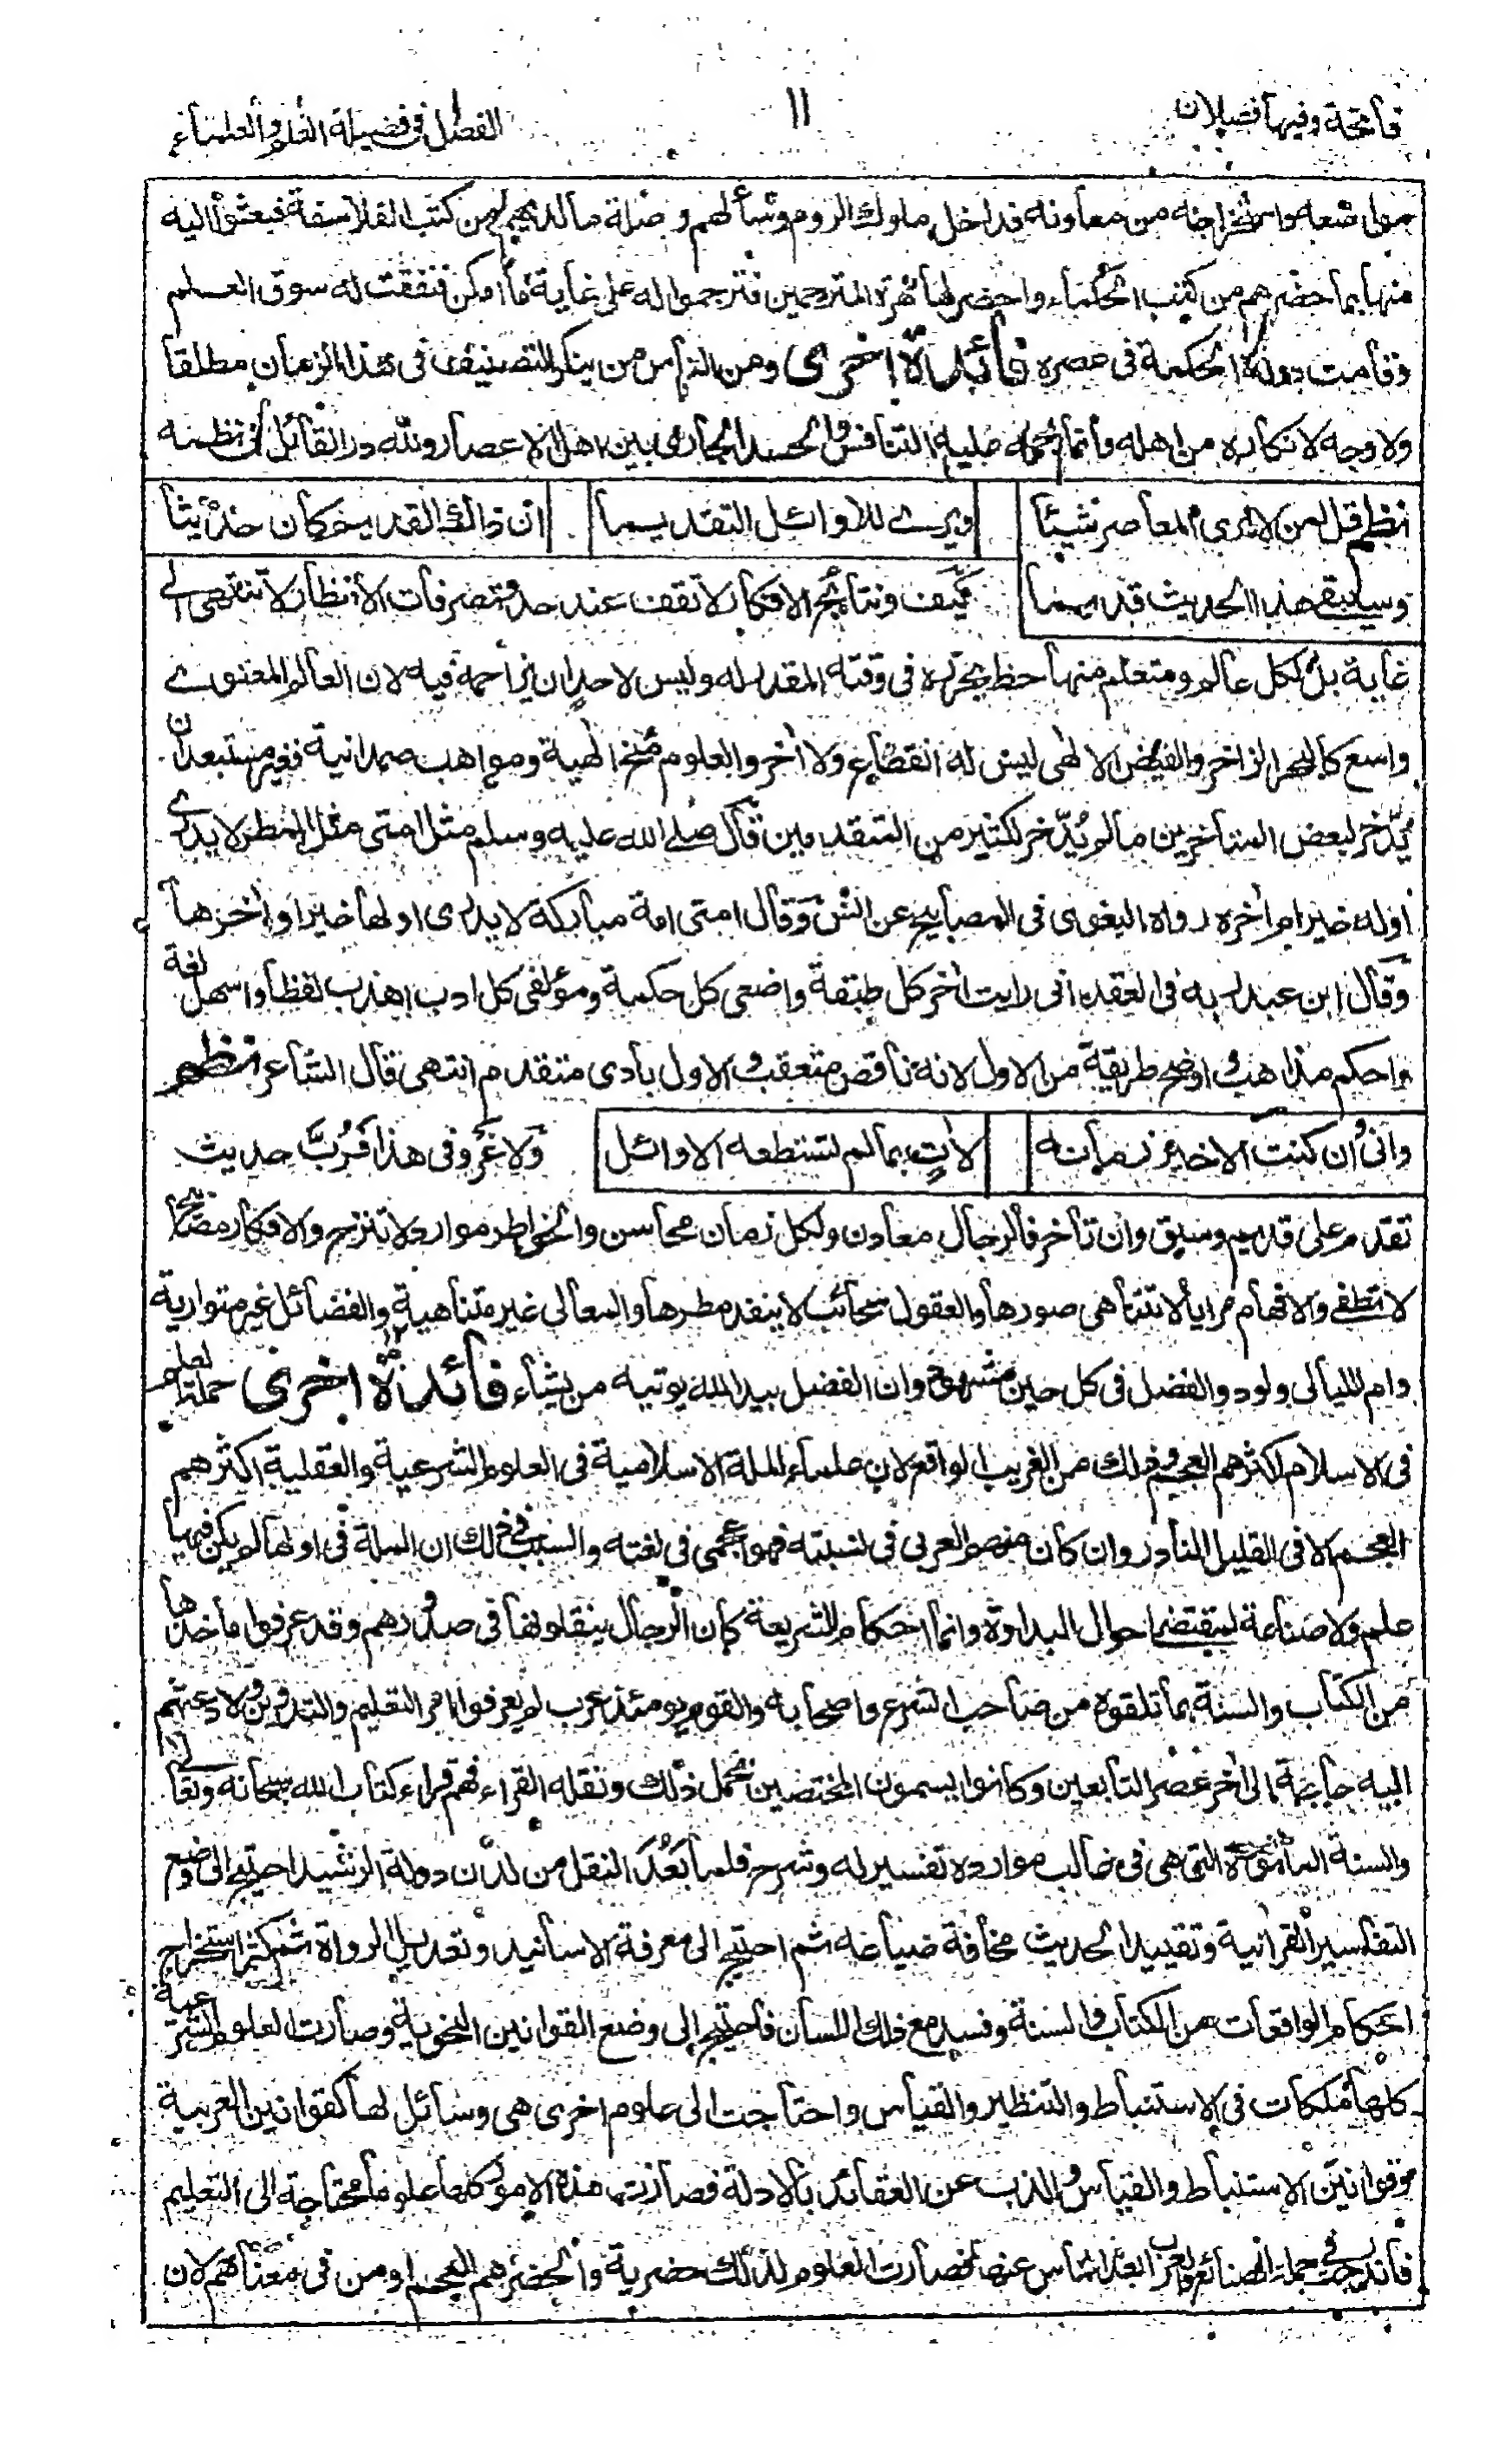 فاتحة وفيها فصلان
١١
الفصل فى فضيلة العلم والعلماء
موضعه واستخراجه من معادنه فداخل ملوك الروم وسألهم وصلة ما لديهم من كتب الفلاسفة فبعثوا اليه
منها بما حضرهم من كتب الحكماء واحضر لها مهرة المترجمين فترجموا له على غاية ما امكن فنفقت له سوق العلم
وقامت دولة الحكمة فى عصره فائدة اخرى ومن الناس من ينكر التصنيف فى هذا الزمان مطلقا
ولا وجه لانكاره من اهله وانما يحمله عليه التنافس والحسد الجارى بين اهل الاعصار ولله در القائل فى نظمه
نظم قل لمن لا يرى المعاصر شيئا ويرے للاوائل التقديما ان ذالك القديم كان حديثا
وسيبقے هذا الحديث قديما كيف ونتائج الافكار لا تقف عند حد وتصرفات الانظار لا تنتهى الے
غاية بل لكل عالم ومتعلم منها حظ يحرزه فى وقته المقدر له وليس لاحد ان يزاحمه فيه لان العالم المعنوے
واسع كالبحر الزاخر والفيض الالهى ليس له انقطاع ولا آخر والعلوم منح الهية ومواهب صمدانية فغير مستبعد ان
يدّخر لبعض المتأخرين ما لم يُدّخر لكثير من المتقدمين قال صلے الله عليه وسلم مثل امتى مثل المطر لا يدرے
اوله خير ام آخره رواه البغوى فى المصابيح عن انس وَقال امتى امة مباركة لا يدرى اولها خير او آخرها
وقال ابن عبد ربه فى العقد انى رايت آخر كل طبقة واضعى كل حكمة ومؤلفى كل ادب اهذب لفظا واسهل لغة
واحكم مذاهب واوضح طريقة من الاول لانه ناقض متعقب والاول بادى متقدم انتهى قال الشاعر نظم
وانى وان كنت الاخير زمانه لآتٍ بما لم تستطعه الاوائل ولا غرو فى هذا فَرُبَّ حديث
تقدم على قديم وسبق وان تأخر فالرجال معادن ولكل زمان محاسن والخواطر موارد لا تنزح والافكار مصابيح
لا تطفے والافهام مرايا لا تتناهى صورها والعقول سحائب لا ينفد مطرها والمعالى غير متناهية والفضائل غير متوارية
وام الليالى ولود والفضل فى كل حين مشهود وان الفضل بيد الله يوتيه من يشاء فائدة اخرى حملة العلم
فى الاسلام اكثرهم العجم وذلك من الغريب الواقع لان علماء الملة الاسلامية فى العلوم الشرعية والعقلية اكثرهم
العجم الا فى القليل النادر وان كان منهم العربى فى نسبته فهو عجمى فى لغته والسبب فى ذلك ان الملة فى اولها لم يكن فيها
علم ولا صناعة لمقتضى احوال البداوة وانما احكام الشريعة كان الرجال ينقلونها فى صدورهم وقد عرفوا ماخذها
من الكتاب والسنة بما تلقوه من صاحب الشرع واصحابه والقوم يومئذ عرب لم يعرفوا امر التعليم والتدوين ولا دعتهم
اليه حاجة الى آخر عصر التابعين وكانوا يسمون المختصين بحمل ذلك ونقله القراء فهم قراء كتاب الله سبحانه وتعالى
والسنة الماثورة التى هى فى غالب موارده تفسير له وشرح فلما بَعُدَ النقل من لدن دولة الرشيد احتيج الى وضع
التفاسير القرآنية وتقييد الحديث مخافة ضياعه ثم احتيج الى معرفة الاسانيد وتعديل الرواة ثم كثر استخراج
احكام الواقعات من الكتاب والسنة وفسد مع ذلك اللسان فاحتيج الى وضع القوانين النحوية وصارت العلوم الشرعية
كلها ملكات فى الاستنباط والتنظير والقياس واحتاجت الى علوم اخرى هى وسائل لها كقوانين العربية
وقوانين الاستنباط والقياس والذب عن العقائد بالادلة فصارت هذه الامور كلها علوما محتاجة الى التعليم
فاندرجت فى جملة الصنائع والعرب ابعد الناس عنها فصارت العلوم لذلك حضرية والحضر هم العجم او من فى معناهم لان